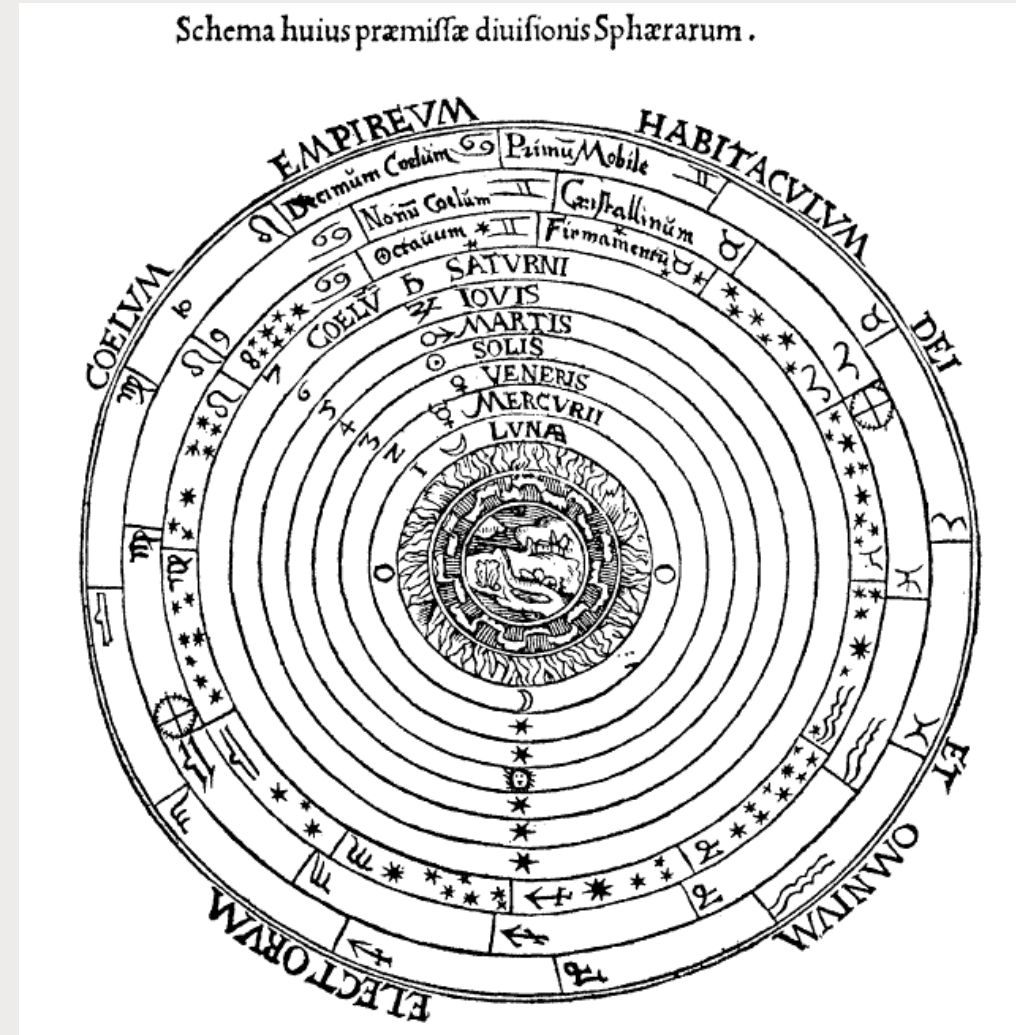 Schema huius præmiſſæ diuiſionis Sphærarum .
COELVM EMPIREVM HABITACVLVM DEI ET OMNIVM ELECTORVM
Decimūm Coelūm ♋ Primū Mobile ♊
Nonū Coelūm ♊ Criſtallinūm ♉
Octauum ♊ Firmamentū ♉
COELV̄ ♄ SATVRNI
♃ IOVIS
♂ MARTIS
☉ SOLIS
♀ VENERIS
☿ MERCVRII
☽ LVNÆ
8
7
6
5
4
3
2
1